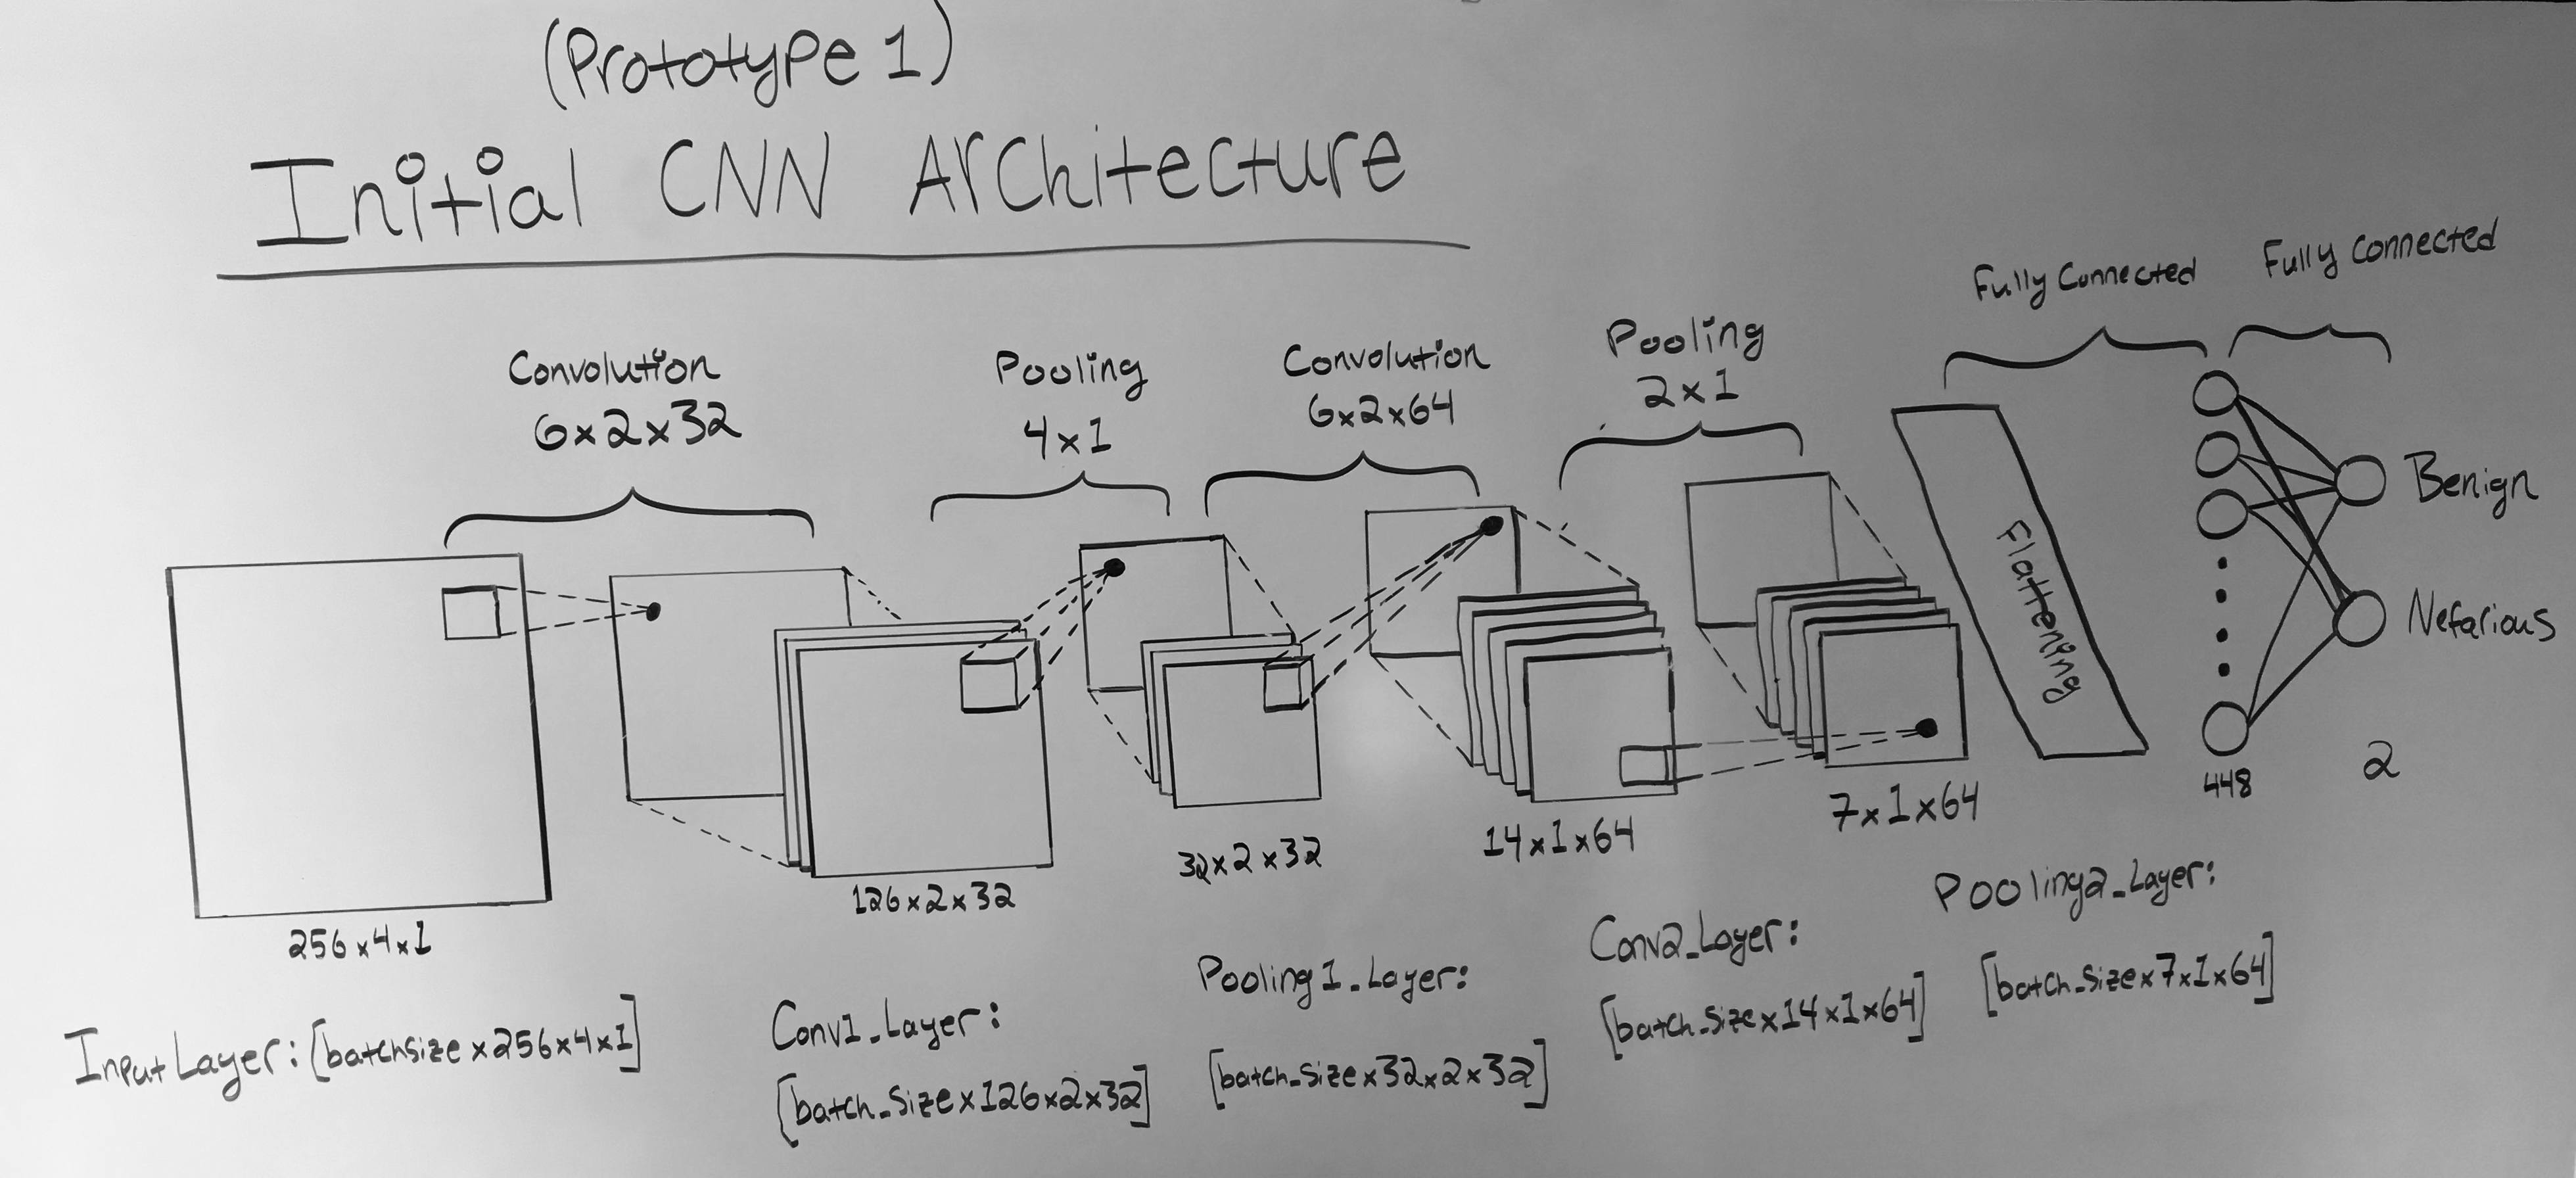 (Prototype 1)
Initial CNN Architecture
Convolution
6x2x32
Pooling
4x1
Convolution
6x2x64
Pooling
2x1
Fully Connected
Fully Connected
Flattening
Benign
Nefarious
256x4x1
126x2x32
32x2x32
14x1x64
7x1x64
448
2
Input Layer: [batchsize x256x4x1]
Conv1_Layer:
[batch_size x126x2x32]
Pooling1_Layer:
[batch_size x32x2x32]
Conv2_Layer:
[batch_size x14x1x64]
Pooling2_Layer:
[batch_size x7x1x64]